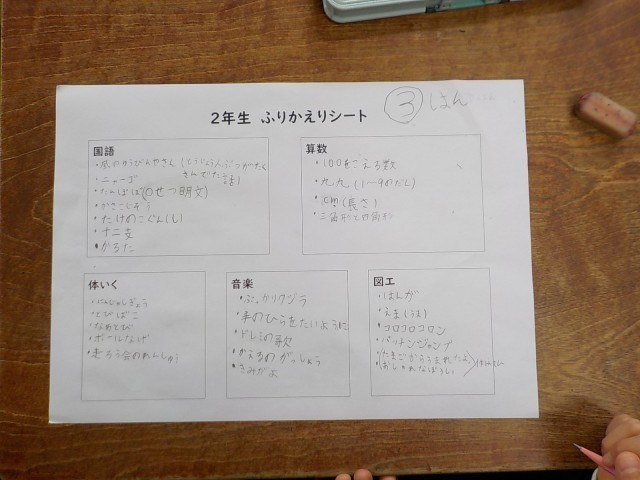 2年生 ふりかえりシート
③ はん
国語
・風のゆうびんやさん(とうじょう人ぶつがたくさんでた話)
・ニャーゴ
・たんぽぽ(のせつ明文)
・かさこじぞう
・たけのこぐん(し)
・十二支
・かるた
算数
・100をこえる数
・九九(1〜9のだん)
・cm(長さ)
・三角形と四角形
体いく
・にんじゃしゅぎょう
・とびばこ
・なわとび
・ボールなげ
・走ろう会のれんしゅう
音楽
・ぶっかりクジラ
・手のひらをたいように
・ドレミの歌
・かえるのがっしょう
・きみがよ
図工
・はんが
・えま(うま)
・コロコロコロン
・パッチンジャンプ
・(たまごからうまれたよ
・(おしゃれなぼうし